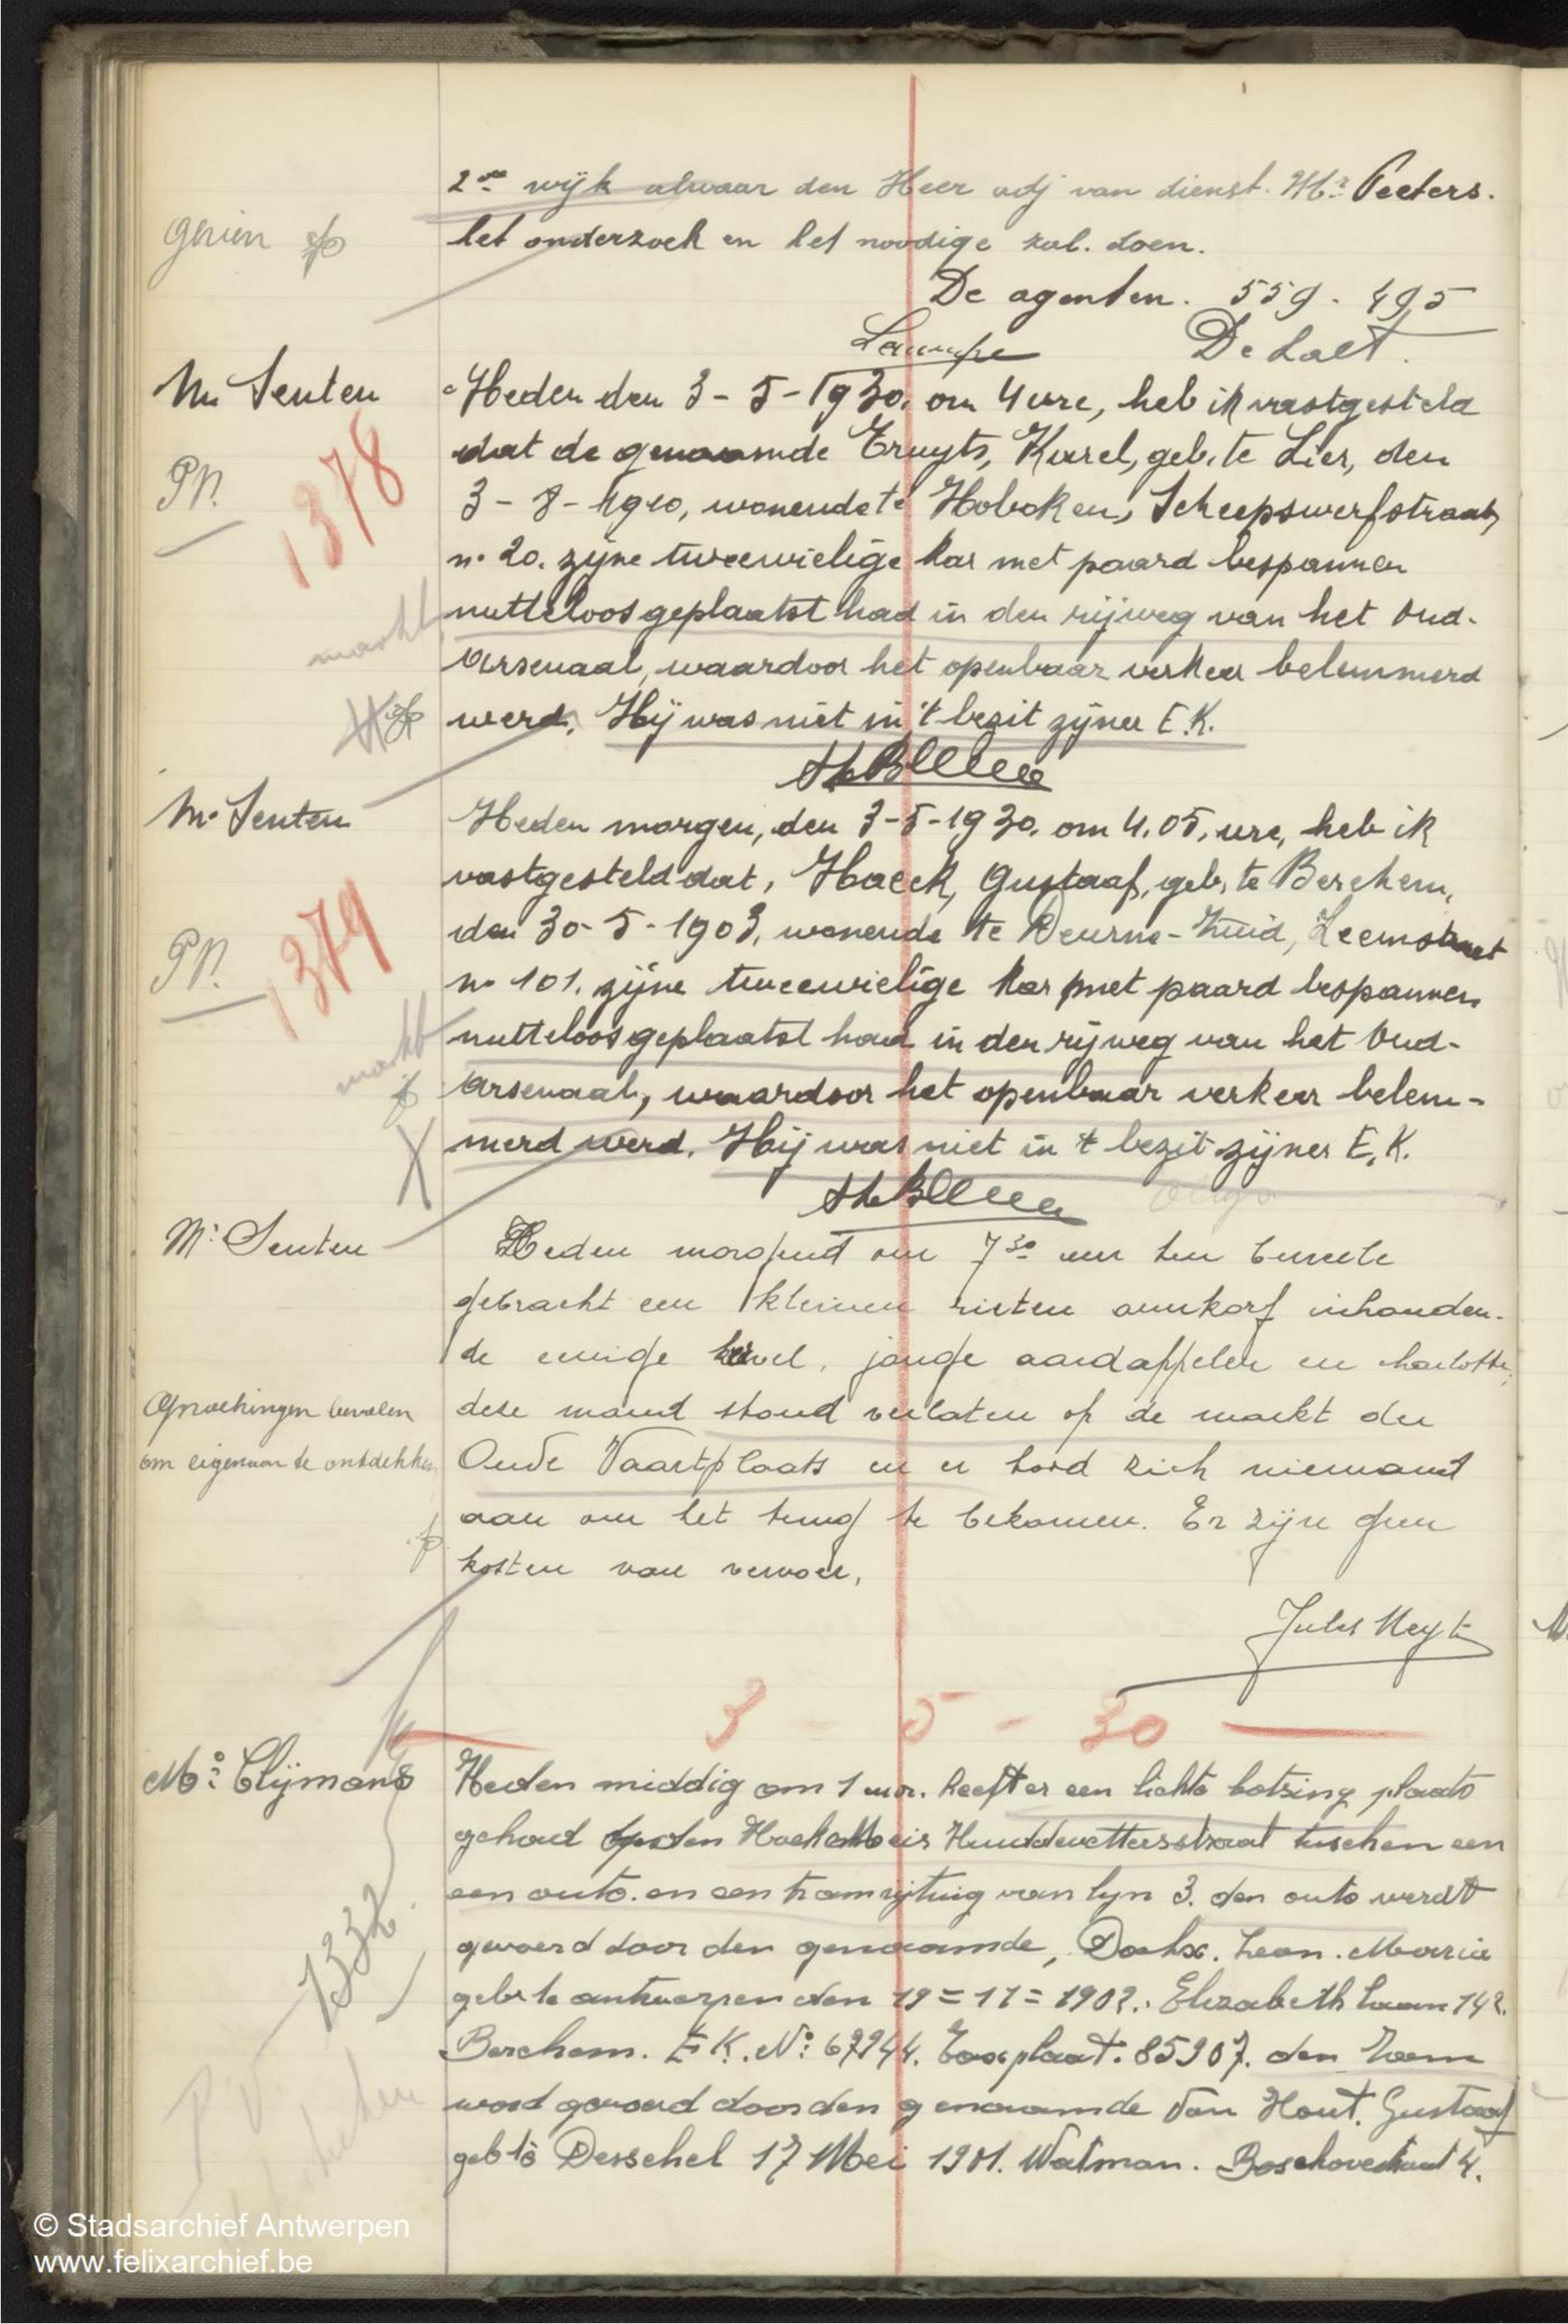 2de wijk alwaar den Heer adj van dienst. Mr Peeters.
gezien
het onderzoek en het noodige zal. doen.
De agenten. 559. 495
De Laet.
Mr Senten
Heden den 3-5-1930. om 4 ure, heb ik vastgesteld
dat de genaamde Truyts, Karel, geb. te Lier, den
PV.
1378
3-8-1910, wonende te Hoboken, Scheepswerfstraat,
n° 20. zijne tweewielige kar met paard bespannen
nutteloos geplaatst had in den rijweg van het Oud-
markt
Arsenaal, waardoor het openbaar verkeer belemmerd
werd. Hij was niet in 't bezit zijner E.K.
Mr Senten
Heden morgen, den 3-5-1930. om 4.05, ure, heb ik
vastgesteld dat, Haeck, Gustaaf, geb. te Berchem,
PV.
1379
den 30-5-1903, wonende te Deurne-Zuid, Leemstraat
n° 101. zijne tweewielige kar met paard bespannen
nutteloos geplaatst had in den rijweg van het Oud-
markt
Arsenaal, waardoor het openbaar verkeer belem-
merd werd. Hij was niet in 't bezit zijner E.K.
Mr Senten
Heden morgend om 7 30 uur ten bureele
gebracht een kleinen rieten armkorf inhouden-
de eenige kervel, jonge aardappelen en charlotte,
Opzoekingen bevolen
deze mand stond verlaten op de markt der
om eigenaar te ontdekken
Oude Vaartplaats en er bood zich niemand
aan om het terug te bekomen. Er zijn geen
kosten van vervoer.
Jules Neyt
3 - 5 - 30
Mr Clijmans
Heden middig om 1 uur. heeft er een lichte botsing plaats
gehad op den Hoek Meir Huidevettersstraat tuschen een
een auto. en een tramrijtuig van lijn 3. den auto werdt
1332
gevoerd door den genaamde, Dockx. Leon. Maria
geb te antwerpen den 19=11=1902. Elizabeth laan 142.
Berchem. E.K. N° 67244. Taxplaat. 85907. den tram
P.V.
word gevoerd door den genaamde Van Hout. Gustaaf
geb te Desschel 17 Mei 1901. Watman. Boschovestraat 4.
© Stadsarchief Antwerpen
www.felixarchief.be